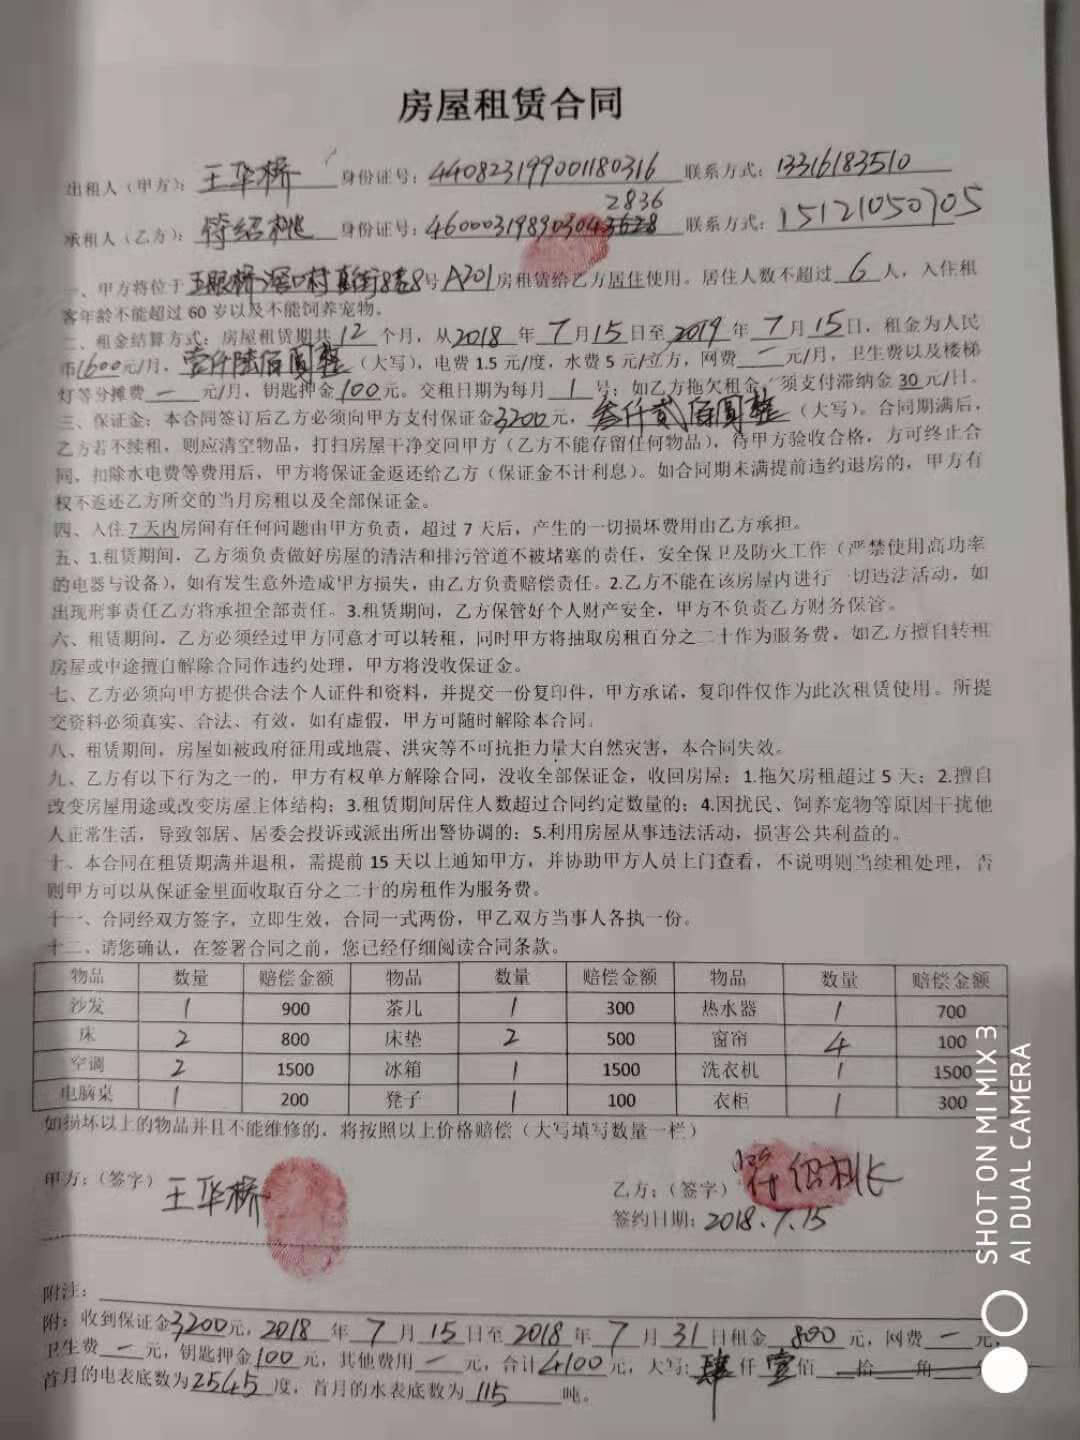 房屋租赁合同
出租人（甲方）：王华桥 身份证号：440823199001180316 联系方式：13316183510
2836
承租人（乙方）：符绍桃 身份证号：46000319890304 联系方式：15121050705
一、甲方将位于 号A201房租赁给乙方居住使用。居住人数不超过6人，入住租
客年龄不能超过60岁以及不能饲养宠物。
二、租金结算方式：房屋租赁期共12个月，从2018年7月15日至2019年7月15日，租金为人民
币1600元/月，壹仟陆佰圆整（大写），电费1.5元/度，水费5元/立方，网费一元/月，卫生费以及楼梯
灯等分摊费一元/月，钥匙押金100元。交租日期为每月1号；如乙方拖欠租金，须支付滞纳金30元/日。
三、保证金：本合同签订后乙方必须向甲方支付保证金3200元，叁仟贰佰圆整（大写）。合同期满后，
乙方若不续租，则应清空物品，打扫房屋干净交回甲方（乙方不能存留任何物品），待甲方验收合格，方可终止合
同，扣除水电费等费用后，甲方将保证金返还给乙方（保证金不计利息）。如合同期未满提前违约退房的，甲方有
权不返还乙方所交的当月房租以及全部保证金。
四、入住7天内房间有任何问题由甲方负责，超过7天后，产生的一切损坏费用由乙方承担。
五、1.租赁期间，乙方须负责做好房屋的清洁和排污管道不被堵塞的责任，安全保卫及防火工作（严禁使用高功率
的电器与设备），如有发生意外造成甲方损失，由乙方负责赔偿责任。2.乙方不能在该房屋内进行一切违法活动，如
出现刑事责任乙方将承担全部责任。3.租赁期间，乙方保管好个人财产安全，甲方不负责乙方财务保管。
六、租赁期间，乙方必须经过甲方同意才可以转租，同时甲方将抽取房租百分之二十作为服务费，如乙方擅自转租
房屋或中途擅自解除合同作违约处理，甲方将没收保证金。
七、乙方必须向甲方提供合法个人证件和资料，并提交一份复印件，甲方承诺，复印件仅作为此次租赁使用。所提
交资料必须真实、合法、有效，如有虚假，甲方可随时解除本合同。
八、租赁期间，房屋如被政府征用或地震、洪灾等不可抗拒力量大自然灾害，本合同失效。
九、乙方有以下行为之一的，甲方有权单方解除合同，没收全部保证金，收回房屋：1.拖欠房租超过5天；2.擅自
改变房屋用途或改变房屋主体结构；3.租赁期间居住人数超过合同约定数量的；4.因扰民、饲养宠物等原因干扰他
人正常生活，导致邻居、居委会投诉或派出所出警协调的；5.利用房屋从事违法活动，损害公共利益的。
十、本合同在租赁期满并退租，需提前15天以上通知甲方，并协助甲方人员上门查看，不说明则当续租处理，否
则甲方可以从保证金里面收取百分之二十的房租作为服务费。
十一、合同经双方签字，立即生效，合同一式两份，甲乙双方当事人各执一份。
十二、请您确认，在签署合同之前，您已经仔细阅读合同条款。
物品 数量 赔偿金额 物品 数量 赔偿金额 物品 数量 赔偿金额
沙发 1 900 茶几 1 300 热水器 1 700
床 2 800 床垫 2 500 窗帘 4 100
空调 2 1500 冰箱 1 1500 洗衣机 1 1500
电脑桌 1 200 凳子 1 100 衣柜 1 300
如损坏以上的物品并且不能维修的，将按照以上价格赔偿（大写填写数量一栏）
甲方：（签字）王华桥
乙方：（签字）符绍桃
签约日期：2018.7.15
附注：
附：收到保证金3200元，2018年7月15日至2018年7月31日租金800元，网费一元，
卫生费一元，钥匙押金100元，其他费用一元，合计4100元，大写：肆仟壹佰 拾 角
首月的电表底数为2545度，首月的水表底数为115吨。
SHOT ON MI MIX 3
AI DUAL CAMERA